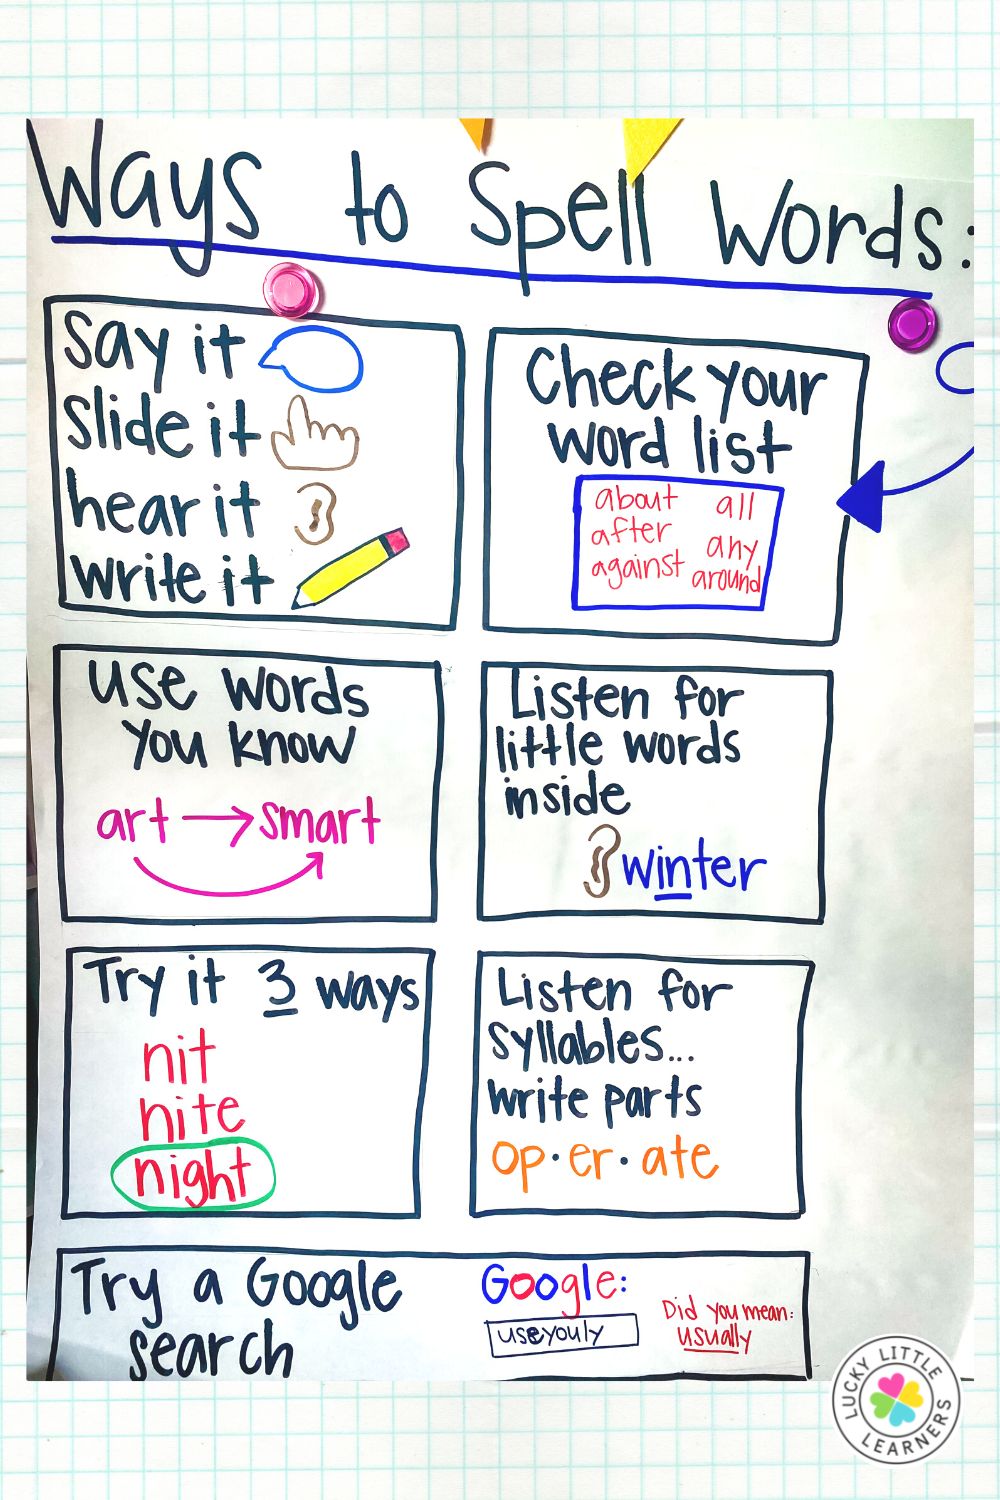 Ways to Spell Words:
Say it
slide it
hear it
write it
Check your
word list
about all
after any
against around
use words
you know
art → smart
Listen for
little words
inside
winter
Try it 3 ways
nit
nite
night
Listen for
syllables...
write parts
op·er·ate
Try a Google
search
Google:
useyouly
Did you mean:
usually
LUCKY LITTLE
LEARNERS